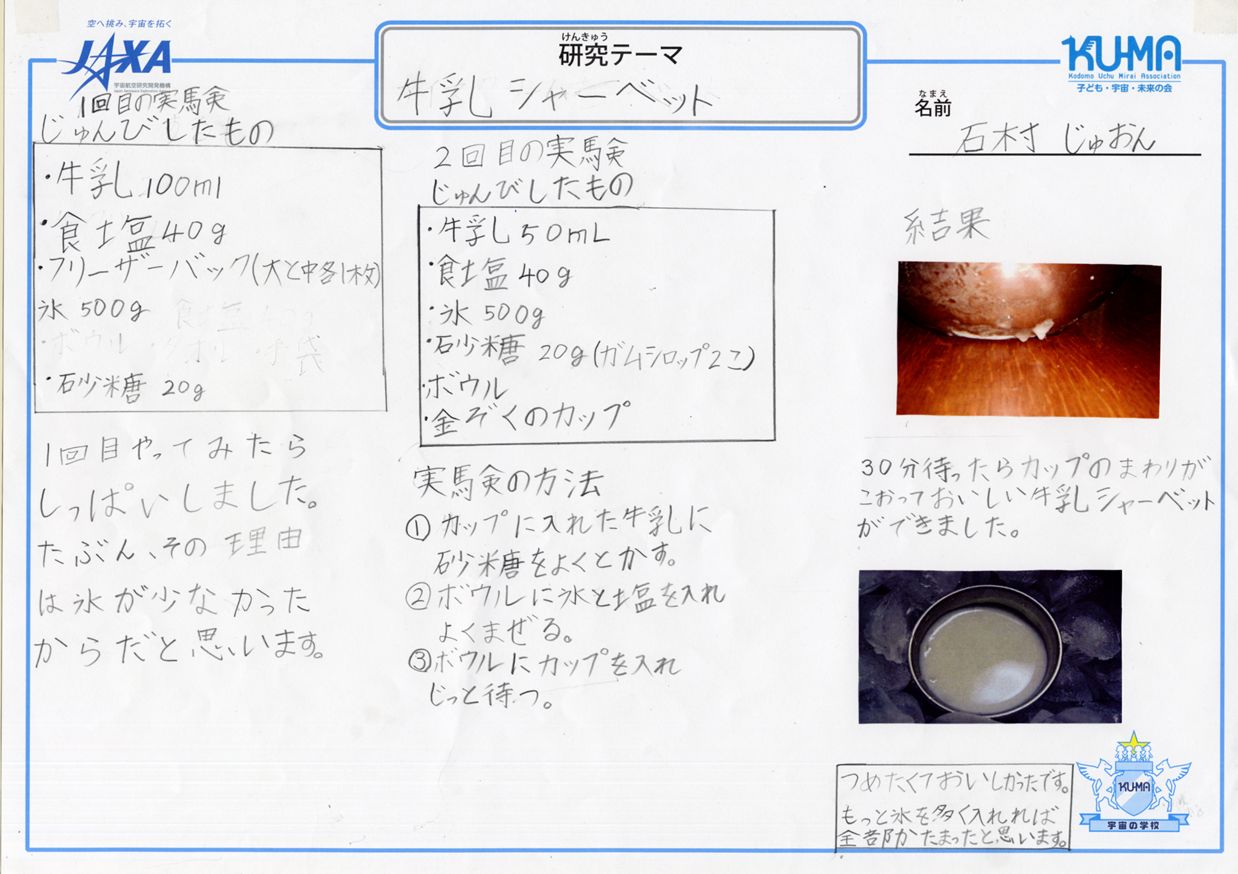 空へ挑み、宇宙を拓く
JAXA
宇宙航空研究開発機構
Japan Aerospace Exploration Agency
けんきゅう
研究テーマ
牛乳シャーベット
KU-MA
Kodomo Uchu Mirai Association
子ども・宇宙・未来の会
なまえ
名前
石村 じゅおん
1回目の実験
じゅんびしたもの
・牛乳100ml
・食士塩40g
・フリーザーバック(大と中各1枚)
氷 500g
・ボウル・タオル・手袋
・砂糖 20g
1回目やってみたら
しっぱいしました。
たぶん、その理由
は氷が少なかった
からだと思います。
2回目の実験
じゅんびしたもの
・牛乳50mL
・食塩 40g
・氷 500g
・砂糖 20g(ガムシロップ2こ)
・ボウル
・金ぞくのカップ
実験の方法
① カップに入れた牛乳に
砂糖をよくとかす。
② ボウルに氷と塩を入れ
よくまぜる。
③ボウルにカップを入れ
じっと待つ。
結果
30分待ったらカップのまわりが
こおっておいしい牛乳シャーベット
ができました。
つめたくておいしかったです。
もっと氷を多く入れれば
全部かたまったと思います。
KU-MA
宇宙の学校